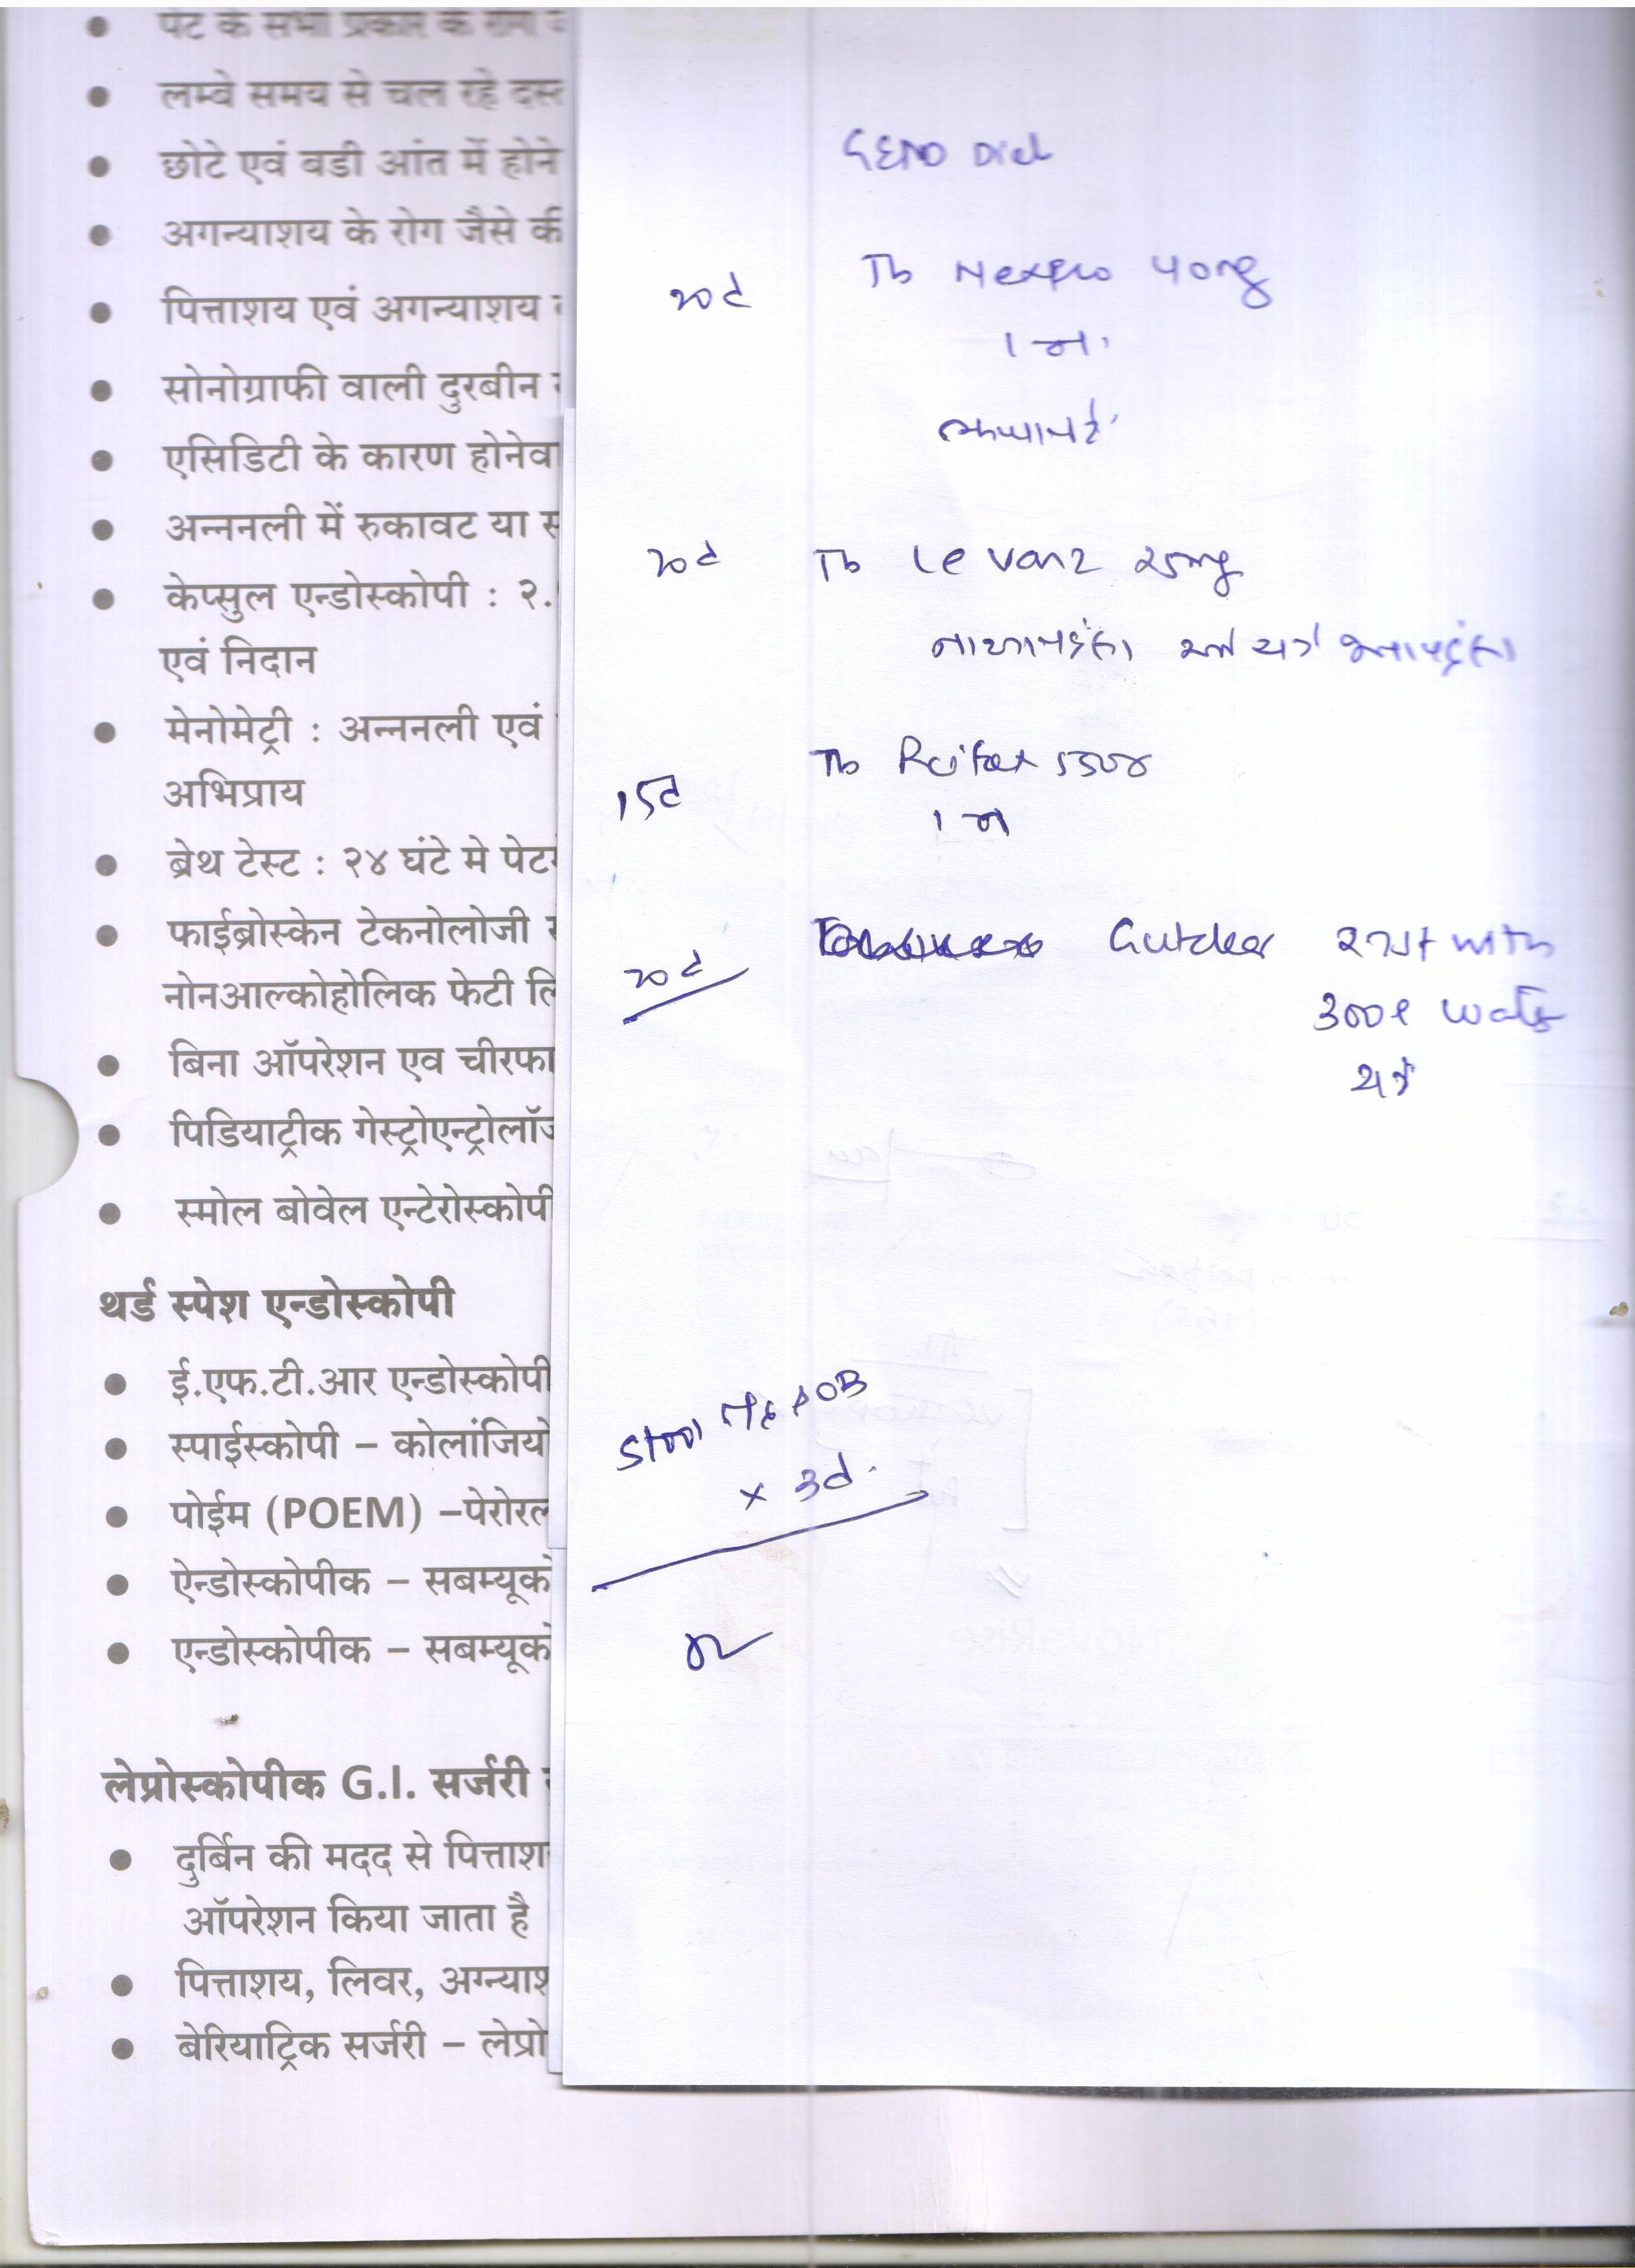 पेट के सभी प्रकार के रोग
लम्बे समय से चल रहे दस्त
छोटे एवं वडी आंत में होने
अगन्याशय के रोग जैसे की
पित्ताशय एवं अगन्याशय
सोनोग्राफी वाली दुरबीन
एसिडिटी के कारण होनेवा
अन्ननली में रुकावट या स
केप्सुल एन्डोस्कोपी : २.
एवं निदान
मेनोमेट्री : अन्ननली एवं
अभिप्राय
ब्रेथ टेस्ट : २४ घंटे मे पेट
फाईब्रोस्केन टेकनोलोजी
नोनआल्कोहोलिक फेटी लि
बिना ऑपरेशन एव चीरफा
पिडियाट्रीक गेस्ट्रोएन्ट्रोलॉज
स्मोल बोवेल एन्टेरोस्कोपी
थर्ड स्पेश एन्डोस्कोपी
ई.एफ.टी.आर एन्डोस्कोपी
स्पाईस्कोपी – कोलांजियो
पोईम (POEM) –पेरोरल
ऐन्डोस्कोपीक – सबम्यूको
एन्डोस्कोपीक – सबम्यूको
लेप्रोस्कोपीक G.I. सर्जरी
दुर्बिन की मदद से पित्ताश
ऑपरेशन किया जाता है
पित्ताशय, लिवर, अग्न्याश
बेरियाट्रिक सर्जरी – लेप्रो
GERD Diet
20d Tb Nexpro 40mg
20d Tb Levanz 25mg
15d Tb Rcifax 550
20d with
water
Stool
x 3d.